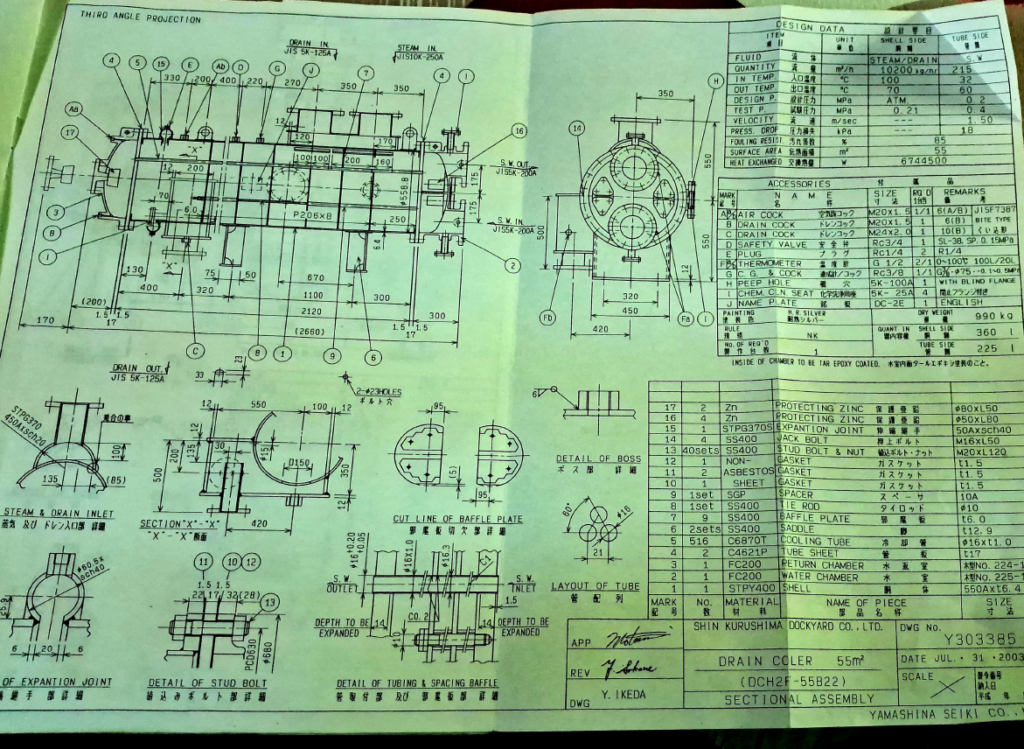 THIRD ANGLE PROJECTION
DRAIN IN
JIS 5K-125A
STEAM IN
JIS10K-250A
4
5
15
E
Ab
D
G
J
4
7
1
330
200
400
220
270
350
350
12
120
170
Aa
17
16
"X"
100
100
200
160
S.W. OUT
JIS5K-200A
175
175
ø558.8
70
60
P206X8
250
64
S.W. IN
JIS5K-200A
3
B
1
2
"X"
130
75
50
670
400
320
1100
300
(200)
2120
1.5
1.5
1.5
1.5
300
170
17
(2660)
17
C
B
1
9
6
350
H
14
550
550
500
12
320
450
420
Fb
Fa
I
DESIGN DATA
ITEM
UNIT
SHELL SIDE
TUBE SIDE
FLUID
STEAM/DRAIN
S.W
QUANTITY
m³/h
10200 kg/hr
215
IN TEMP.
入口温度
°C
100
32
OUT TEMP.
出口温度
°C
70
60
DESIGN P.
設計圧力
MPa
ATM
0.2
TEST P.
試験圧力
MPa
0.21
0.4
VELOCITY
流 速
m/sec
---
1.50
PRESS. DROP
圧力損失
kPa
---
18
FOULING RESIST.
汚れ係数
%
85
SURFACE AREA
m²
55
HEAT EXCHANGED
交換熱量
W
6744500
ACCESSORIES
付 属 品
MARK
記号
NAME
SIZE
寸 法
RQ'D
REMARKS
備 考
AIR COCK
空気抜コック
M20x1.5
1/1
6(A/B)
JISF7387
B
DRAIN COCK
ドレンコック
M20x1.5
1
6(B)
BITE TYPE
C
DRAIN COCK
ドレンコック
M24x2.0
1
10(B)
D
SAFETY VALVE
安 全 弁
Rc3/4
1
SL-38, SP. 0.15MPa
E
PLUG
プ ラ グ
Rc1/4
2
R1/4
THERMOMETER
温 度 計
G 1/2
2/1
0~100℃ 100L/20L
G
C.G. & COCK
Rc3/8
1/1
H
PEEP HOLE
5K-100A
1
WITH BLIND FLANGE
I
CHEM. CLN. SEAT
化学洗浄用座
5K- 25A
4
J
NAME PLATE
銘 板
DC-2E
1
ENGLISH
PAINTING
塗装色
H.R.SILVER
耐熱シルバー
DRY WEIGHT
990 kg
RULE
NK
QUANT IN
SHELL SIDE
360 l
NO. OF REQ'D
製作台数
1
TUBE SIDE
225 l
INSIDE OF CHAMBER TO BE TAR EPOXY COATED.
水室内面タールエポキシ塗装のこと。
DRAIN OUT
JIS 5K-125A
33
23
2-ø23HOLES
ボルト穴
STPG370
450Axsch20
100
135
(85)
STEAM & DRAIN INLET
蒸気 及び ドレン入口部 詳細
12
550
100
12
200
135
30
D150
500
350
12
420
SECTION "X"-"X"
"X"-"X" 断面
95
(5)
95
CUT LINE OF BAFFLE PLATE
邪魔板切欠部詳細
6
DETAIL OF BOSS
ボス部 詳細
60°
ø16
21
LAYOUT OF TUBE
管配列
ø60.5x
sch40
6
20
6
OF EXPANTION JOINT
11
10
12
1.5
1.5
22
17
32
(28)
13
PCD630
ø680
DETAIL OF STUD BOLT
植込みボルト部 詳細
ø16+0.20
+0.05
ø16X1.0
ø16.3
C1
S.W.
OUTLET
S.W.
INLET
1.5
DEPTH TO BE
EXPANDED
14
C0.2
14
DEPTH TO BE
EXPANDED
ø10
DETAIL OF TUBING & SPACING BAFFLE
管取付部 及び 邪魔板部 詳細
17
2
Zn
PROTECTING ZINC
保護亜鉛
ø80xL50
16
4
Zn
PROTECTING ZINC
保護亜鉛
ø50xL80
15
1
STPG370S
EXPANTION JOINT
伸縮継手
50AXsch40
14
4
SS400
JACK BOLT
押上ボルト
M16xL50
13
40sets
SS400
STUD BOLT & NUT
植込ボルト・ナット
M20XL120
12
1
NON-
GASKET
ガスケット
t1.5
11
2
ASBESTOS
GASKET
ガスケット
t1.5
10
1
SHEET
GASKET
ガスケット
t1.5
9
1set
SGP
SPACER
スペーサ
10A
8
1set
SS400
TIE ROD
タイロッド
ø10
7
9
SS400
BAFFLE PLATE
邪魔板
t6.0
6
2sets
SS400
SADDLE
脚
t12.9
5
516
C6870T
COOLING TUBE
冷却管
ø16xt1.0
4
2
C4621P
TUBE SHEET
管 板
t17
3
1
FC200
RETURN CHAMBER
水室
木型NO. 224-1
2
1
FC200
WATER CHAMBER
水 室
木型NO. 225-1
1
1
STPY400
SHELL
胴 体
550AXt6.4
MARK
記号
NO.
数
MATERIAL
材 料
NAME OF PIECE
部品名称
SIZE
寸 法
APP
REV
DWG
Y. IKEDA
SHIN KURUSHIMA DOCKYARD CO., LTD.
DWG NO.
Y303385
DRAIN COLER 55m²
(DCH2F-55B22)
SECTIONAL ASSEMBLY
DATE JUL. 31 .2003
SCALE
YAMASHINA SEIKI CO.,